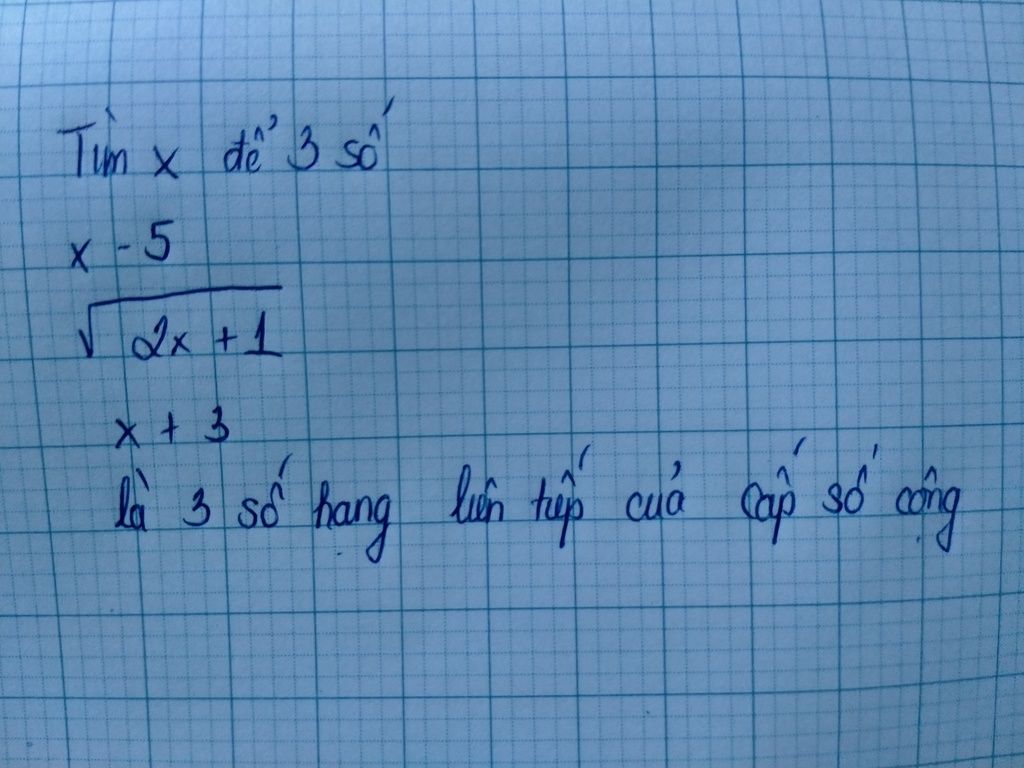 Tìm x để 3 số
x - 5
√2x + 1
x + 3
là 3 số hạng liên tiếp của cấp số cộng